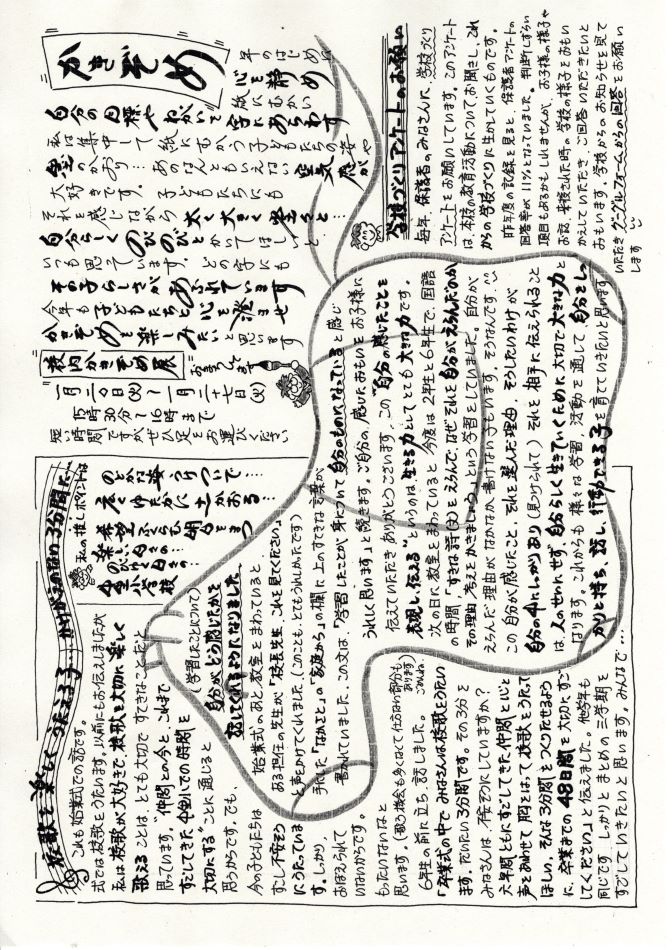 かきぞめ
年のはじめに
心を静め
紙にむかい
自分の目標やねがいを字にあらわす
私は集中して紙にむかう子どもたちの姿や
墨のかおり…あのなんともいえない空気感が
大好きです。子どもたちにも
それを感じながら太く大きく堂々と…
自分らしくのびのびとかいてほしいと
いつも思っています。どの字にも
その子らしさがあふれています
今年も子どもたちと心を澄ませ
かきぞめを楽しみたいと思います
校内かきぞめ展
おまちしてます
一月二十日(火)〜一月二十七日(火)
15時30分〜16時まで
短い時間ですがぜひ足をお運びください
学校づくりアンケートのお願い
毎年、保護者のみなさんに、学校づくり
アンケートをお願いしています。このアンケート
は、本校の教育活動についてお聞きし、これ
からの学校づくりに生かしていくものです。
昨年度の記録を見ると、保護者アンケートの
回答率が11%となっていました。判断しずらい
項目も多々かもしれませんが、お子様の様子や
お話、来校された時の学校の様子をおもい
かえしていただき、ご回答いただきたいと
おもいます。学校からのお知らせを見て
いただきグーグルフォームからの回答をお願い
します
校歌を楽しくうたえる子…かけがえのない3分間に…
私の推しポイントは
のどかな
ゆたかに土かおる…
希望ふくらむ明日をまつ
小学校
これも始業式での話です。
式では校歌をうたいます。以前にもお伝えしましたが
私は校歌が大好きで、校歌を大切に楽しく
歌えることは、とても大切ですてきなことだと
思っています。仲間との今と、これまで
すごしてきた小での時間を
大切にする"ことに通じると
思うからです。でも、
今の子どもたちは
すこし不安そう
にうたっていま
す。しっかり、
おぼえられて
いないからです。
もったいないなと
思います(歌う機会も多くなくて仕方ない部分も
あります
6年生の前に立ち、話しました。
「卒業式の中でみなさんは校歌をうたい
ます。だいたい3分間です。その3分を
みなさんは、不安そうにしていますか?
六年間ともにすごしてきた仲間と心と
声をあわせて胸をはって校歌をうたって
ほしい。そんな3分間をつくりだせるよう
に、卒業までの48日間を大切にすご
してください」と伝えました。他学年も
同じです。しっかりとまとめの三学期を
すごしていきたいと思います。みんなで…
(学習したことについて)
自分がどう感じたかを
話してくれるようになりました
始業式のあと、教室をまわっていると
ある担任の先生が「校長先生、これを見てください」
と声をかけてくれました(このことも、とてもうれしかったです)
手にした「なかこと」の「家庭から」の欄に上のすてきな言葉が
書かれていました。この文は、「学習したことが身について自分のものになっていると感じ
うれしく思います」と続きます。ご自分の、感じたおもいをお子様に
伝えていただきありがとうございます。この"自分の感じたことを
表現し、伝える"というのは、生きる力としてとても大きな力です。
次の日に教室をまわっていると、今度は、2年生と6年生で、国語
の時間、「すきな詩(文)をえらんで、なぜそれを自分がえらんだのか
その理由、考えをかきましょう」という学習をしていました。自分が
えらんだ理由がなかなか書けない子もいます。そうなんです。
この自分が感じたこと、それを選んだ理由、そうしたいわけが
自分の中にしっかりあり(見つけられて)それを相手に伝えられること
は、人のせいにせず、自分らしく生きていくために大切で大きな力と
なります。これからも様々な学習、活動を通して、自分をしっ
かりと持ち、話し、行動できる子を育てていきたいと思います。